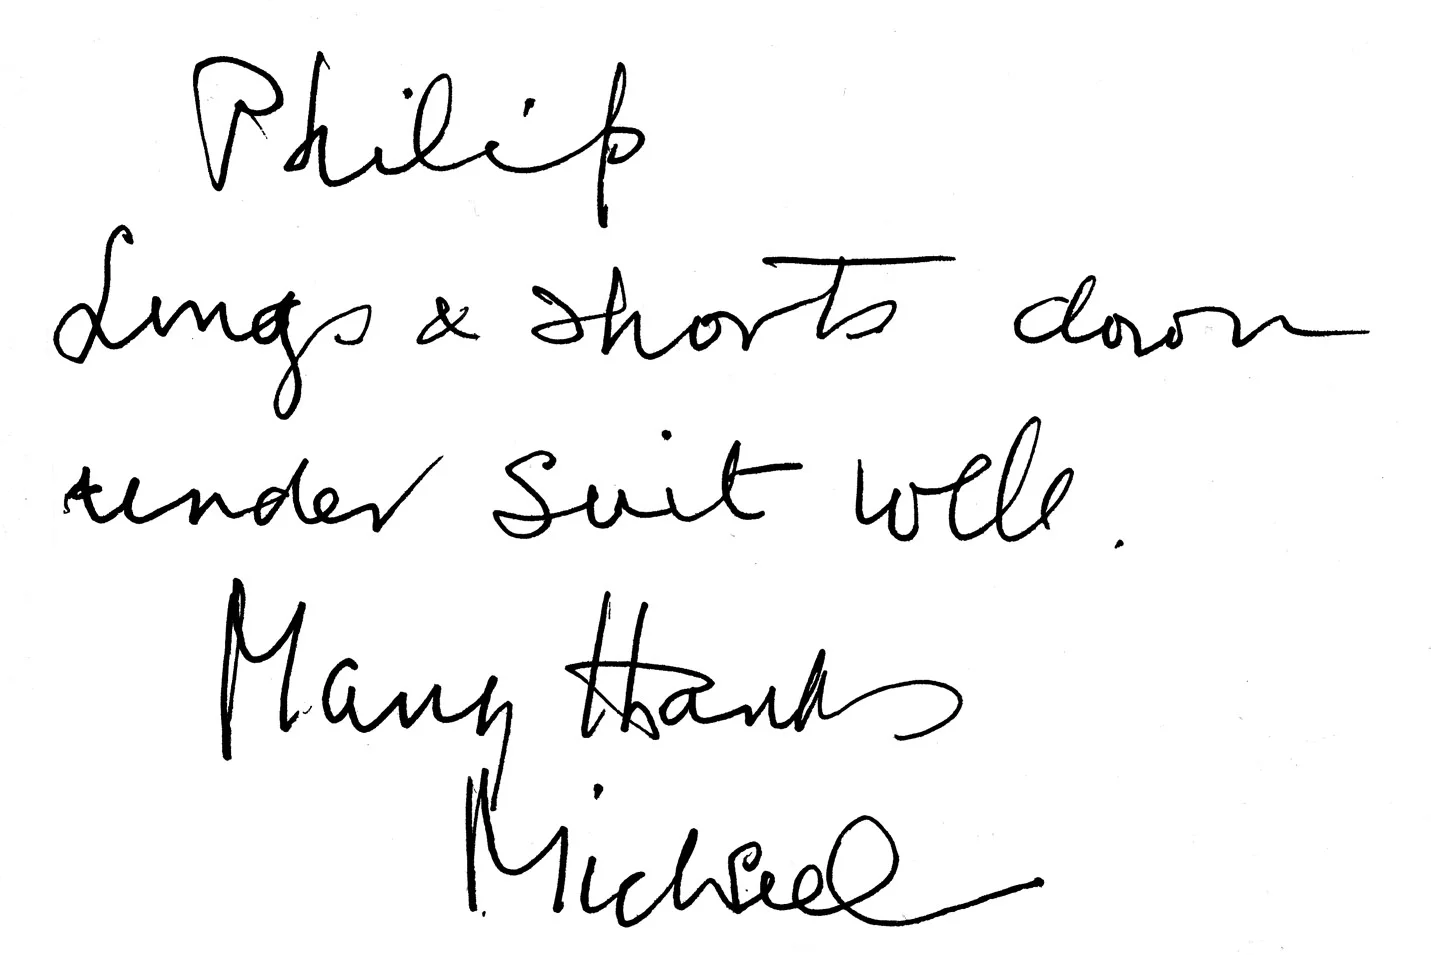 Philip
Lings & shorts down
under suit well.
Many thanks
Michael